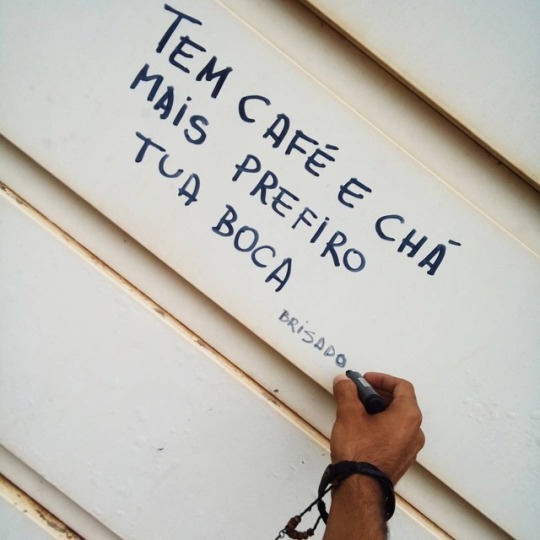 TEM CAFÉ E CHÁ
MAIS PREFIRO
TUA BOCA
BRISADO